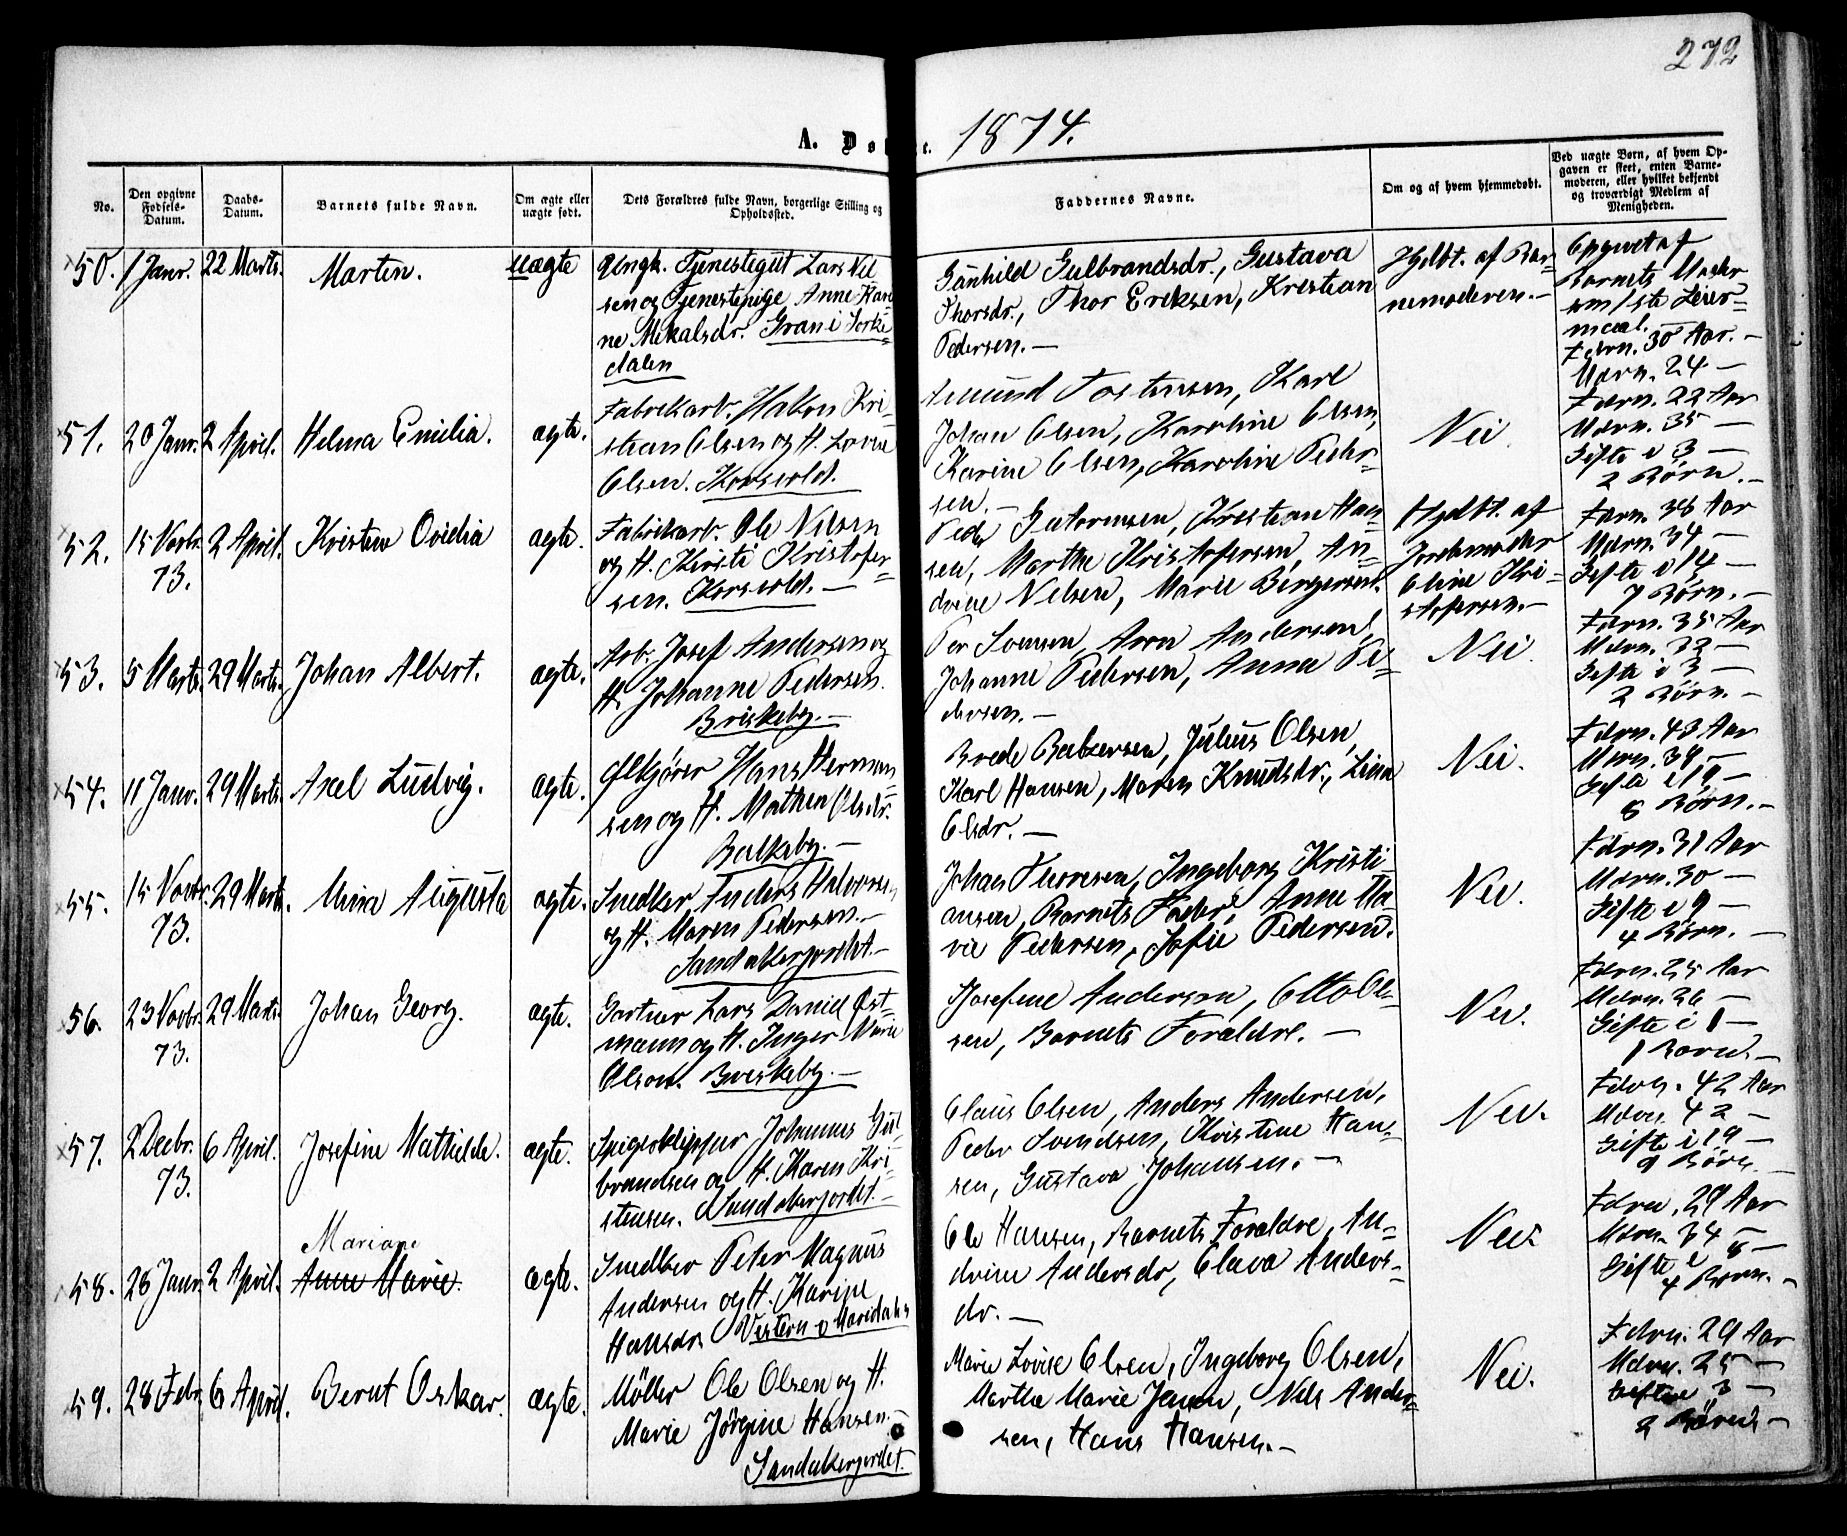 272
A. Dø te. 1874.
No.
Den opgivne
Fødsels-
Datum.
Daabs-
Datum.
Barnets fulde Navn.
Om ægte eller
uægte født.
Dets Forældres fulde Navn, borgerlige Stilling og
Opholdssted.
Faddernes Navne.
Om og af hvem hjemmedøbt.
Ved uægte Børn, af hvem Op-
gaven er skeet, enten Barne-
moderen, eller hvilket bekjendt
og troværdigt Medlem af
Menigheden.
50. 1 Janr. 22 Marts. Marten. uægte
Ungk. Tjenestegut Lars Nil
sen og Tjenestepige Anne Kare
ne Mikalsdr. Gran i Sørke-
dalen
Gunhild Gulbrandsdr., Gustava
Thorsdr., Thor Eriksen, Kristian
Pedersen.—
Hjdbt. af Bar-
nemoderen.—
Opgivet af
Barnets Moder
som 1ste Leier-
maal.
Fdrn. 30 Aar.—
Mdrn. 24 —
51. 20 Janr. 2 April. Helma Emilia. ægte.
Fabrikarb. Hakon Kri-
stian Olsen og H. Lovise
Olsen. Korsvold.
Amund Tostensen, Karl
Johan Olsen, Karoline Olsen,
Karine Olsen, Karoline Peder-
sen.—
Nei.
Fdrn. 22 Aar
Mdrn. 35 —
Gifte i 3 —
2 Børn.—
52. 15 Novbr. 2 April. Kristine Ovidia ægte.
73.
Fabrikarb. Ole Nilsen
og H. Kirsti Kristofer-
sen. Korsvold.—
Peder Gutormsen, Kristian Han
sen, Marthe Kristofersen, An-
drine Nelsen, Marie Birgersen.
Hjdbt. af
Jordemoder
Oline Kri-
stofersen.—
Fdrn. 36 Aar
Mdrn. 34 —
Gifte i 14 —
7 Børn.—
53. 5 Marts. 29 Marts. Johan Albert. ægte.
Arb. Josef Andersen og
H. Johanne Pedersen.
Briskeby.—
Per Svensen, Arn Andersen,
Johanne Pedersen, Anna Pe-
dersen.—
Nei.
Fdrn. 35 Aar
Mdrn. 32 —
Gifte i 3 —
2 Børn.—
54. 11 Janr. 29 Marts. Axel Ludvig. ægte.
Ølkjører Hans Herman
sen og H. Mathea Olsdr.
Balkeby.—
Brede Julius Olsen,
Karl Hansen, Maren Knudsdr., Lina
Olsdr.—
Nei.
Fdrn. 43 Aar
Mdrn. 39 —
Gifte i 19 —
8 Børn.—
55. 15 Novbr. 29 Marts. Mina Augusta ægte.
73.
Snedker Anders Halvorsen
og H. Maren Pedersen.—
Sandakerjordet.—
Johan Ingeborg Kristi-
ansen, Barnets Fader, Anne Ma
rie Pedersen, Sofie Pedersen.
Nei.
Fdrn. 31 Aar
Mdrn. 30 —
Gifte i 9 —
4 Børn.—
56. 23 Novbr. 29 Marts. Johan Georg. ægte.
73.
Gartner Lars Daniel Øst-
mann og H. Inger Marie
Olsen. Briskeby.—
Josefine Andersen, Otto Ol-
sen, Barnets Forældre.—
Nei.
Fdrn. 25 Aar
Mdrn. 26 —
Gifte i 1 —
1 Barn.—
57. 2 Decbr. 6 April. Josefine Mathilde. ægte.
73.
Spigerklipper Johannes Gul-
brandsen og H. Karen Kri-
stensen. Sandakerjordet.—
Claus Olsen, Anders Andersen,
Peder Svendsen, Kristine Han-
sen, Gustava Johansen.—
Nei.
Fdrn. 42 Aar
Mdrn. 42 —
Gifte i 19 —
9 Børn.—
Mariane
58. 26 Janr. 2 April. Anne Marie. ægte.
Snedker Peter Magnus
Andersen og H. Karine
Hansdr. Vestern i Maridalen
Ole Hansen, Barnets Forældre, An-
drine Andersdr, Olava Anders-
dr.—
Nei.
Fdrn. 29 Aar
Mdrn. 34 —
Gifte i 8 —
4 Børn.—
59. 28 Febr. 6 April. Bernt Oskar. ægte.
Möller Ole Olsen og H.
Marie Jörgine Hansen.—
Sandakerjordet.
Marie Lovise Olsen, Ingeborg Olsen,
Marthe Marie Jensen, Nils Ander-
sen, Hans Hansen.—
Nei.
Fdrn. 29 Aar
Mdrn. 25 —
Gifte i 3 —
2 Børn.—